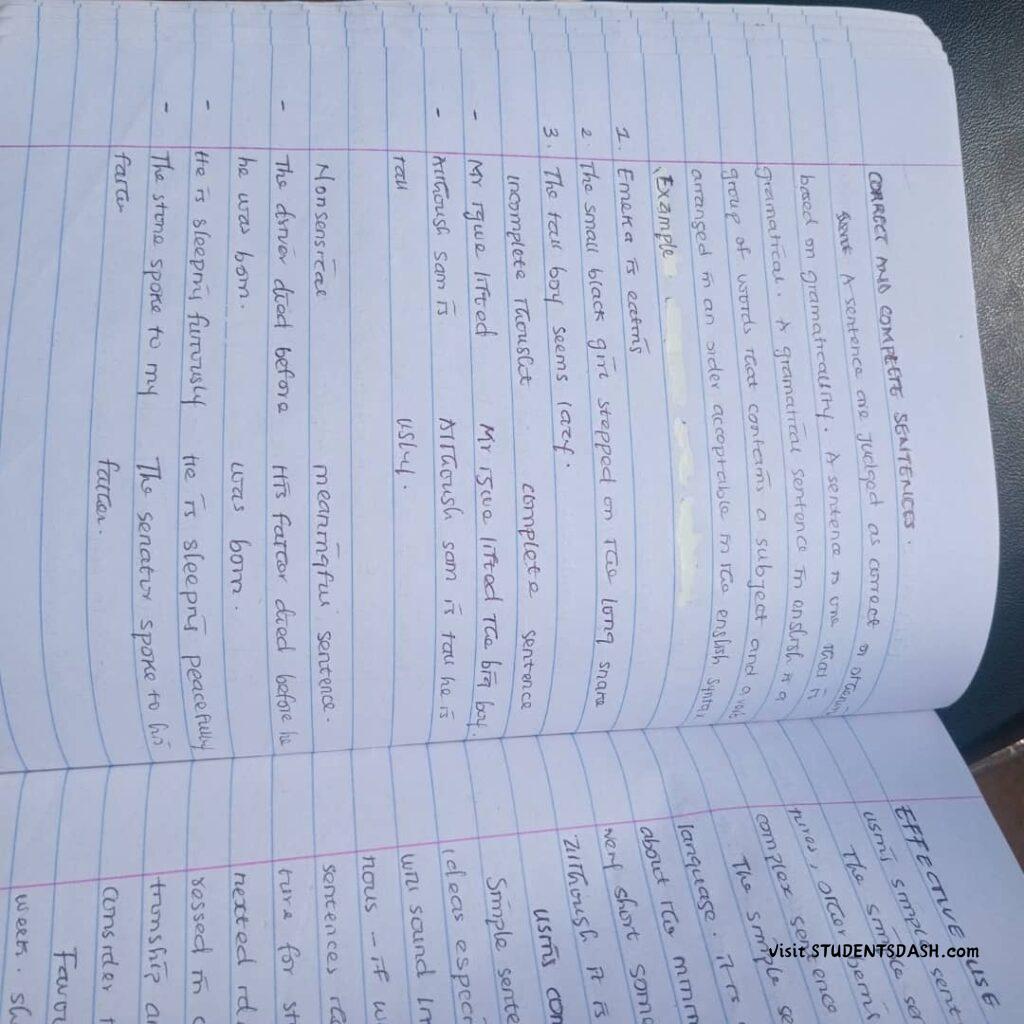 CORRECT AND COMPLETE SENTENCES.
A sentence are judged as correct or
based on gramaticality. A sentence is one that is
gramatical. A gramatical sentence in english is a
group of words that contains a subject and a
arranged in an order acceptable in the english syntax
Example
1. Emeka is eating
2. The small black girl stepped on the long snake
3. The tall boy seems lazy.
incomplete thought complete sentence
- Mr igwe lifted Mr igwe lifted the big boy.
- Although sam is Although sam is tall he is
tall ugly.
Nonsensical meaningful sentence.
- The driver died before His father died before he
he was born. was born.
- He is sleeping furiously He is sleeping peacefully
- The stone spoke to my The senator spoke to his
father father.
EFFECTIVE USE
using simple sent
The simple sen
tures, other
complex sentence
The simple se
language. it is
about the minim
very short some
Although it is
using com
Simple sente
ideas especi
will sound im
nous - if w
sentences
ture for st
nexted
ressed in
tionship a
Consider t
Favou
week. sh
Visit STUDENTSDASH.com